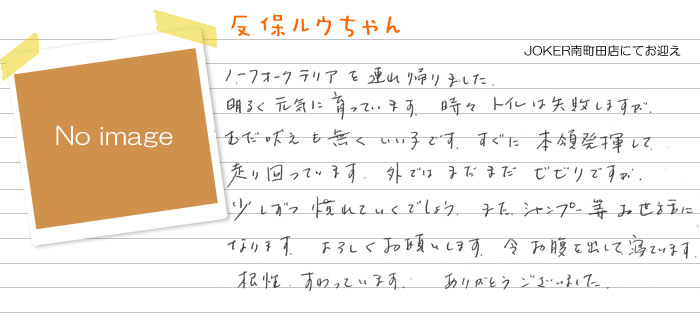 反保ルウちゃん
JOKER南町田店にてお迎え
No image
ノーフォークテリアを連れ帰りました.
明るく元気に育っています. 時々トイレは失敗しますが.
むだ吠えも無くいい子です. すぐに本領発揮して
走り回っています. 外ではまだまだビビリですが.
少しずつ慣れていくでしょう. また. シャンプー等お世話に
なります. よろしくお願いします. 今お腹を出して寝ています.
根性. すわっています. ありがとうございました.